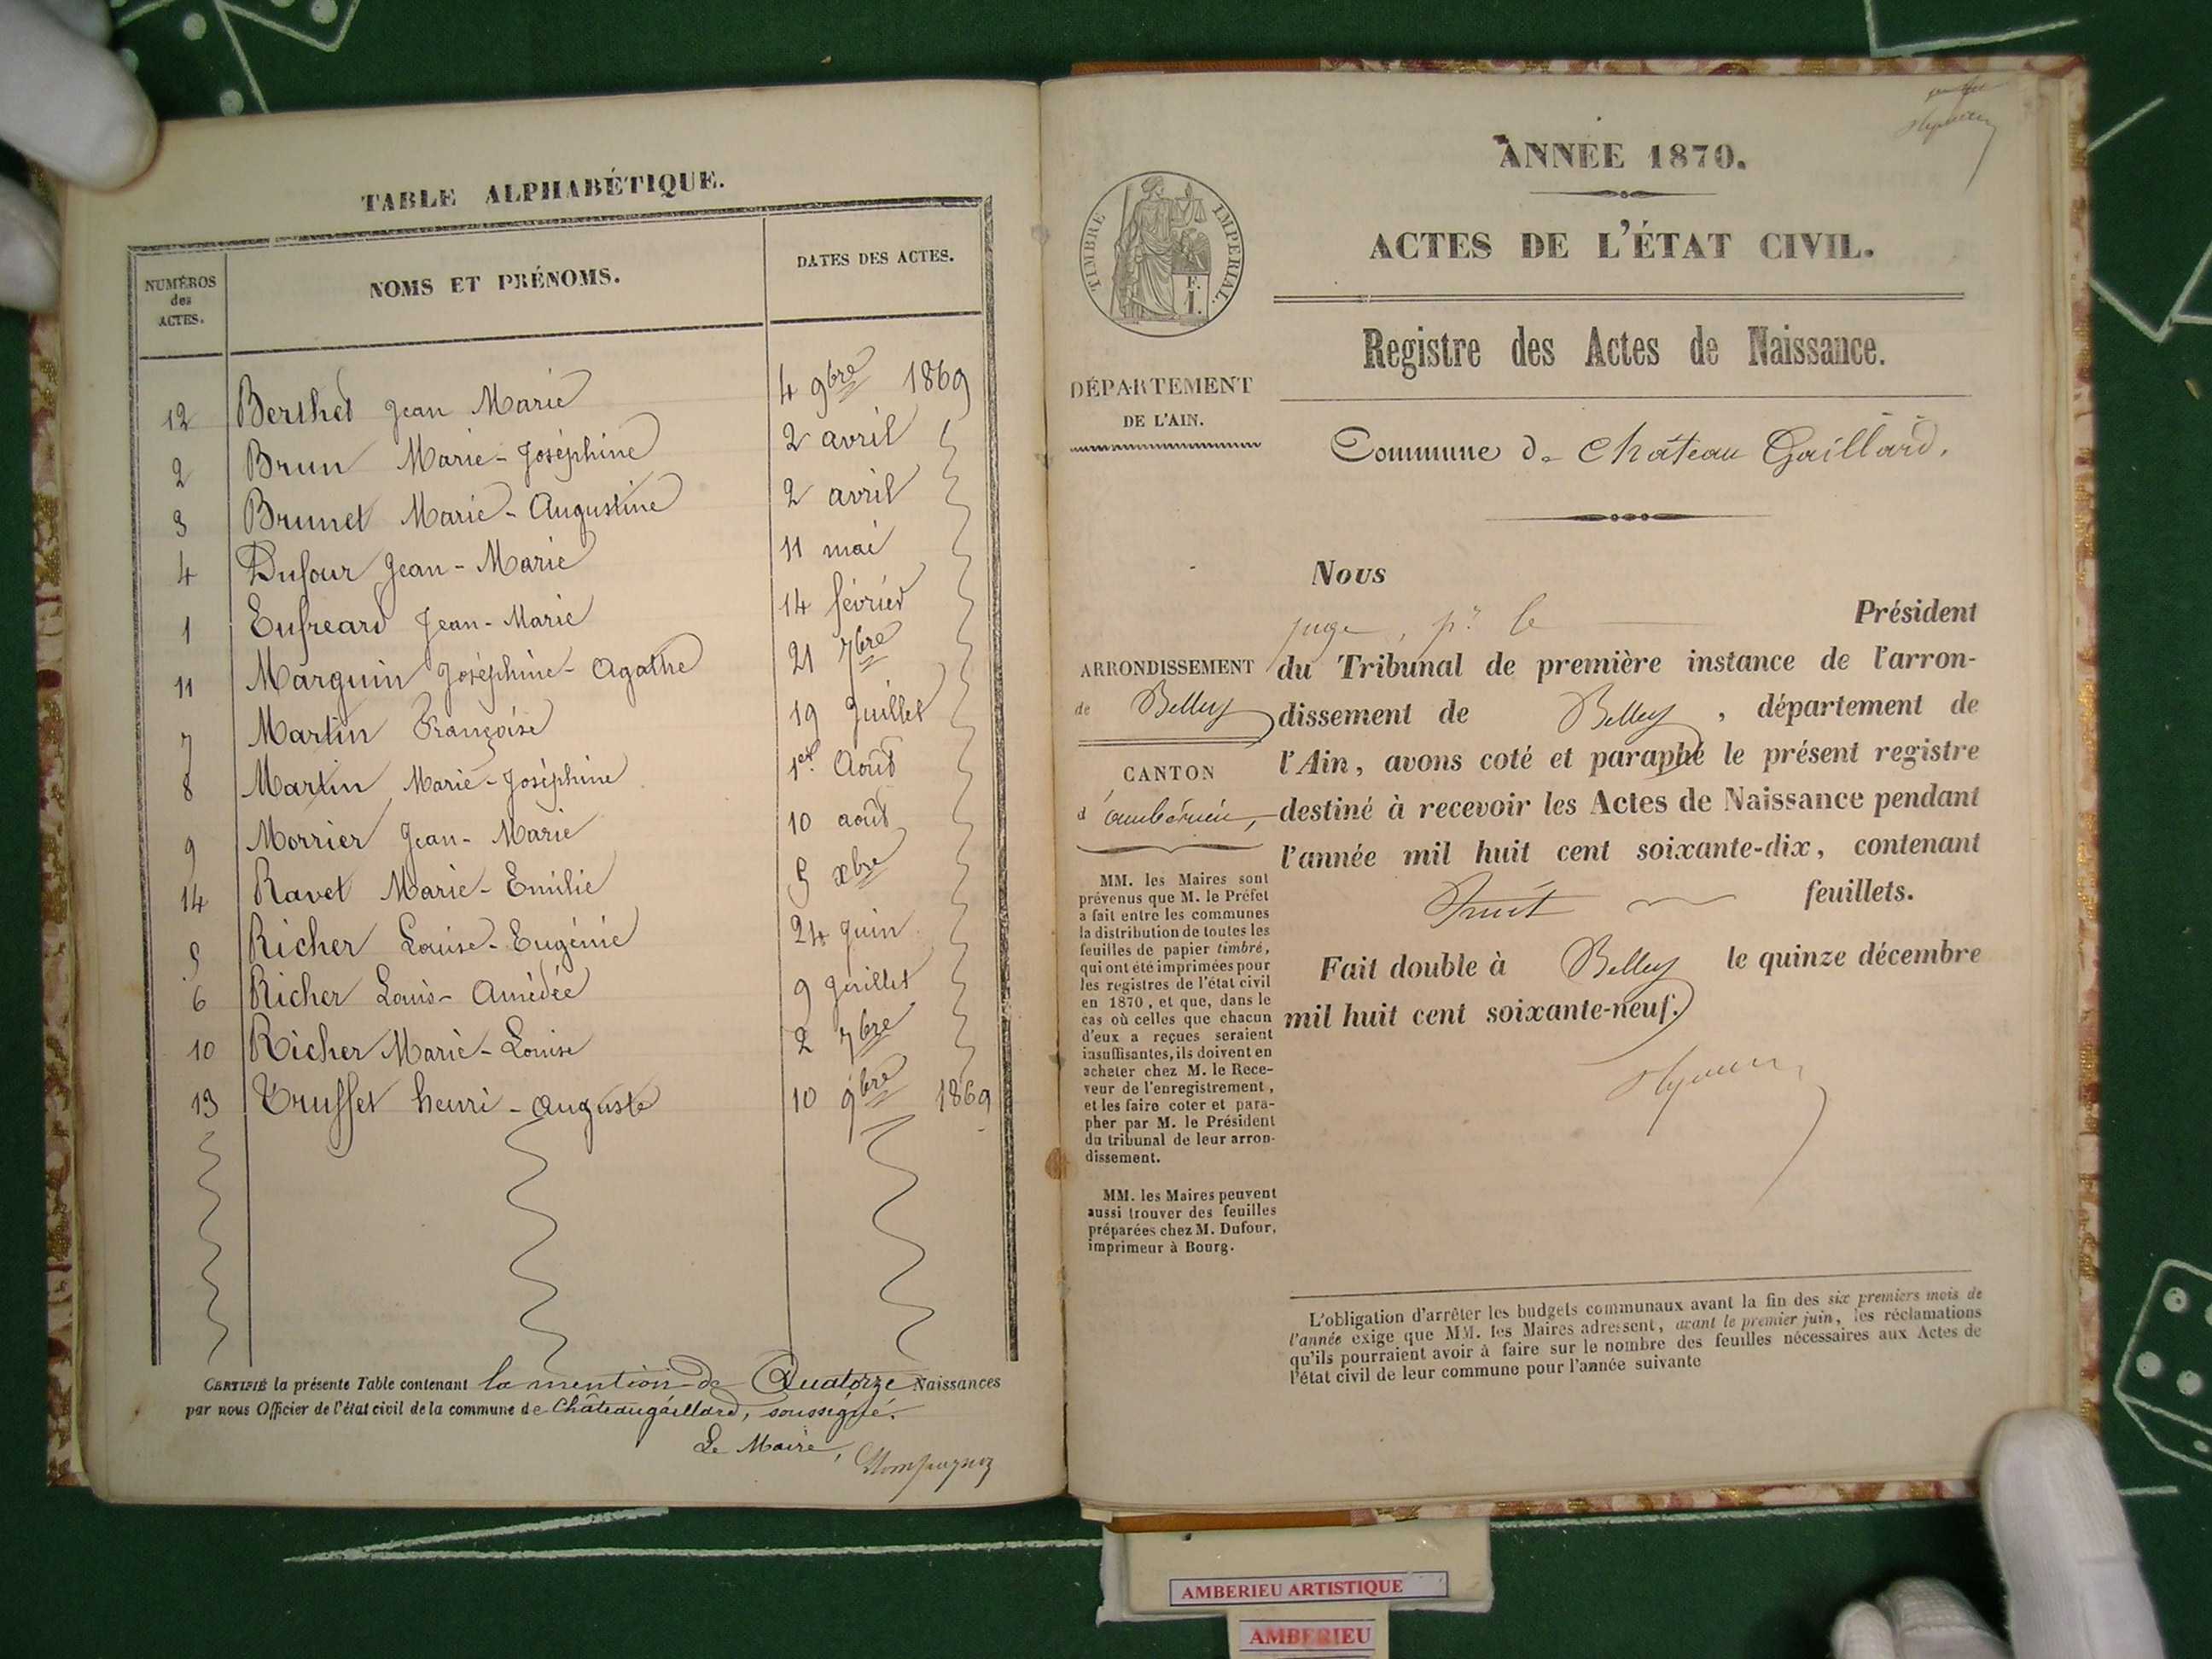 TABLE ALPHABÉTIQUE.
NUMÉROS des ACTES. NOMS ET PRÉNOMS. DATES DES ACTES.
12 Berthet Jean Marie 4 9bre 1869
2 Brun Marie-Joséphine 2 avril
3 Brunet Marie-Augustine 2 avril
4 Dufour Jean-Marie 11 mai
1 Eufreard Jean-Marie 14 février
11 Marguin Joséphine-Agathe 21 7bre
7 Martin Françoise 19 Juillet
8 Martin Marie-Joséphine 1er Août
9 Morrier Jean-Marie 10 août
14 Ravet Marie-Emilie 5 xbre
5 Richer Louise-Eugénie 24 Juin
6 Richer Louis-Amédée 9 Juillet
10 Richer Marie-Louise 2 7bre
13 Truffet henri-Auguste 10 9bre 1869
CERTIFIÉ la présente Table contenant la mention de Quatorze Naissances
par nous Officier de l'état civil de la commune de Châteaugaillard, soussigné.
Le Maire,
ANNÉE 1870.
ACTES DE L'ÉTAT CIVIL.
TIMBRE IMPERIAL.
F.
1.
Registre des Actes de Naissance.
DÉPARTEMENT
DE L'AIN.
Commune de Château Gaillard.
ARRONDISSEMENT
de Belley
CANTON
d'ambérieu,
MM. les Maires sont
prévenus que M. le Préfet
a fait entre les communes
la distribution de toutes les
feuilles de papier timbré,
qui ont été imprimées pour
les registres de l'état civil
en 1870, et que, dans le
cas où celles que chacun
d'eux a reçues seraient
insuffisantes, ils doivent en
acheter chez M. le Rece-
veur de l'enregistrement,
et les faire coter et para-
pher par M. le Président
du tribunal de leur arron-
dissement.
MM. les Maires peuvent
aussi trouver des feuilles
préparées chez M. Dufour,
imprimeur à Bourg.
Nous
juge, pr le Président
du Tribunal de première instance de l'arron-
dissement de Belley, département de
l'Ain, avons coté et paraphé le présent registre
destiné à recevoir les Actes de Naissance pendant
l'année mil huit cent soixante-dix, contenant
huit feuillets.
Fait double à Belley le quinze décembre
mil huit cent soixante-neuf.
L'obligation d'arrêter les budgets communaux avant la fin des six premiers mois de
l'année exige que MM. les Maires adressent, avant le premier juin, les réclamations
qu'ils pourraient avoir à faire sur le nombre des feuilles nécessaires aux Actes de
l'état civil de leur commune pour l'année suivante
AMBERIEU ARTISTIQUE
AMBERIEU